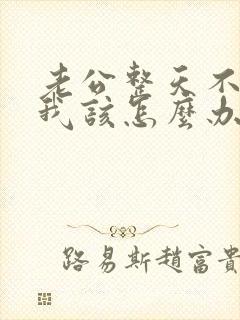 老公整天不
我該怎麼办
路易斯趙富貴